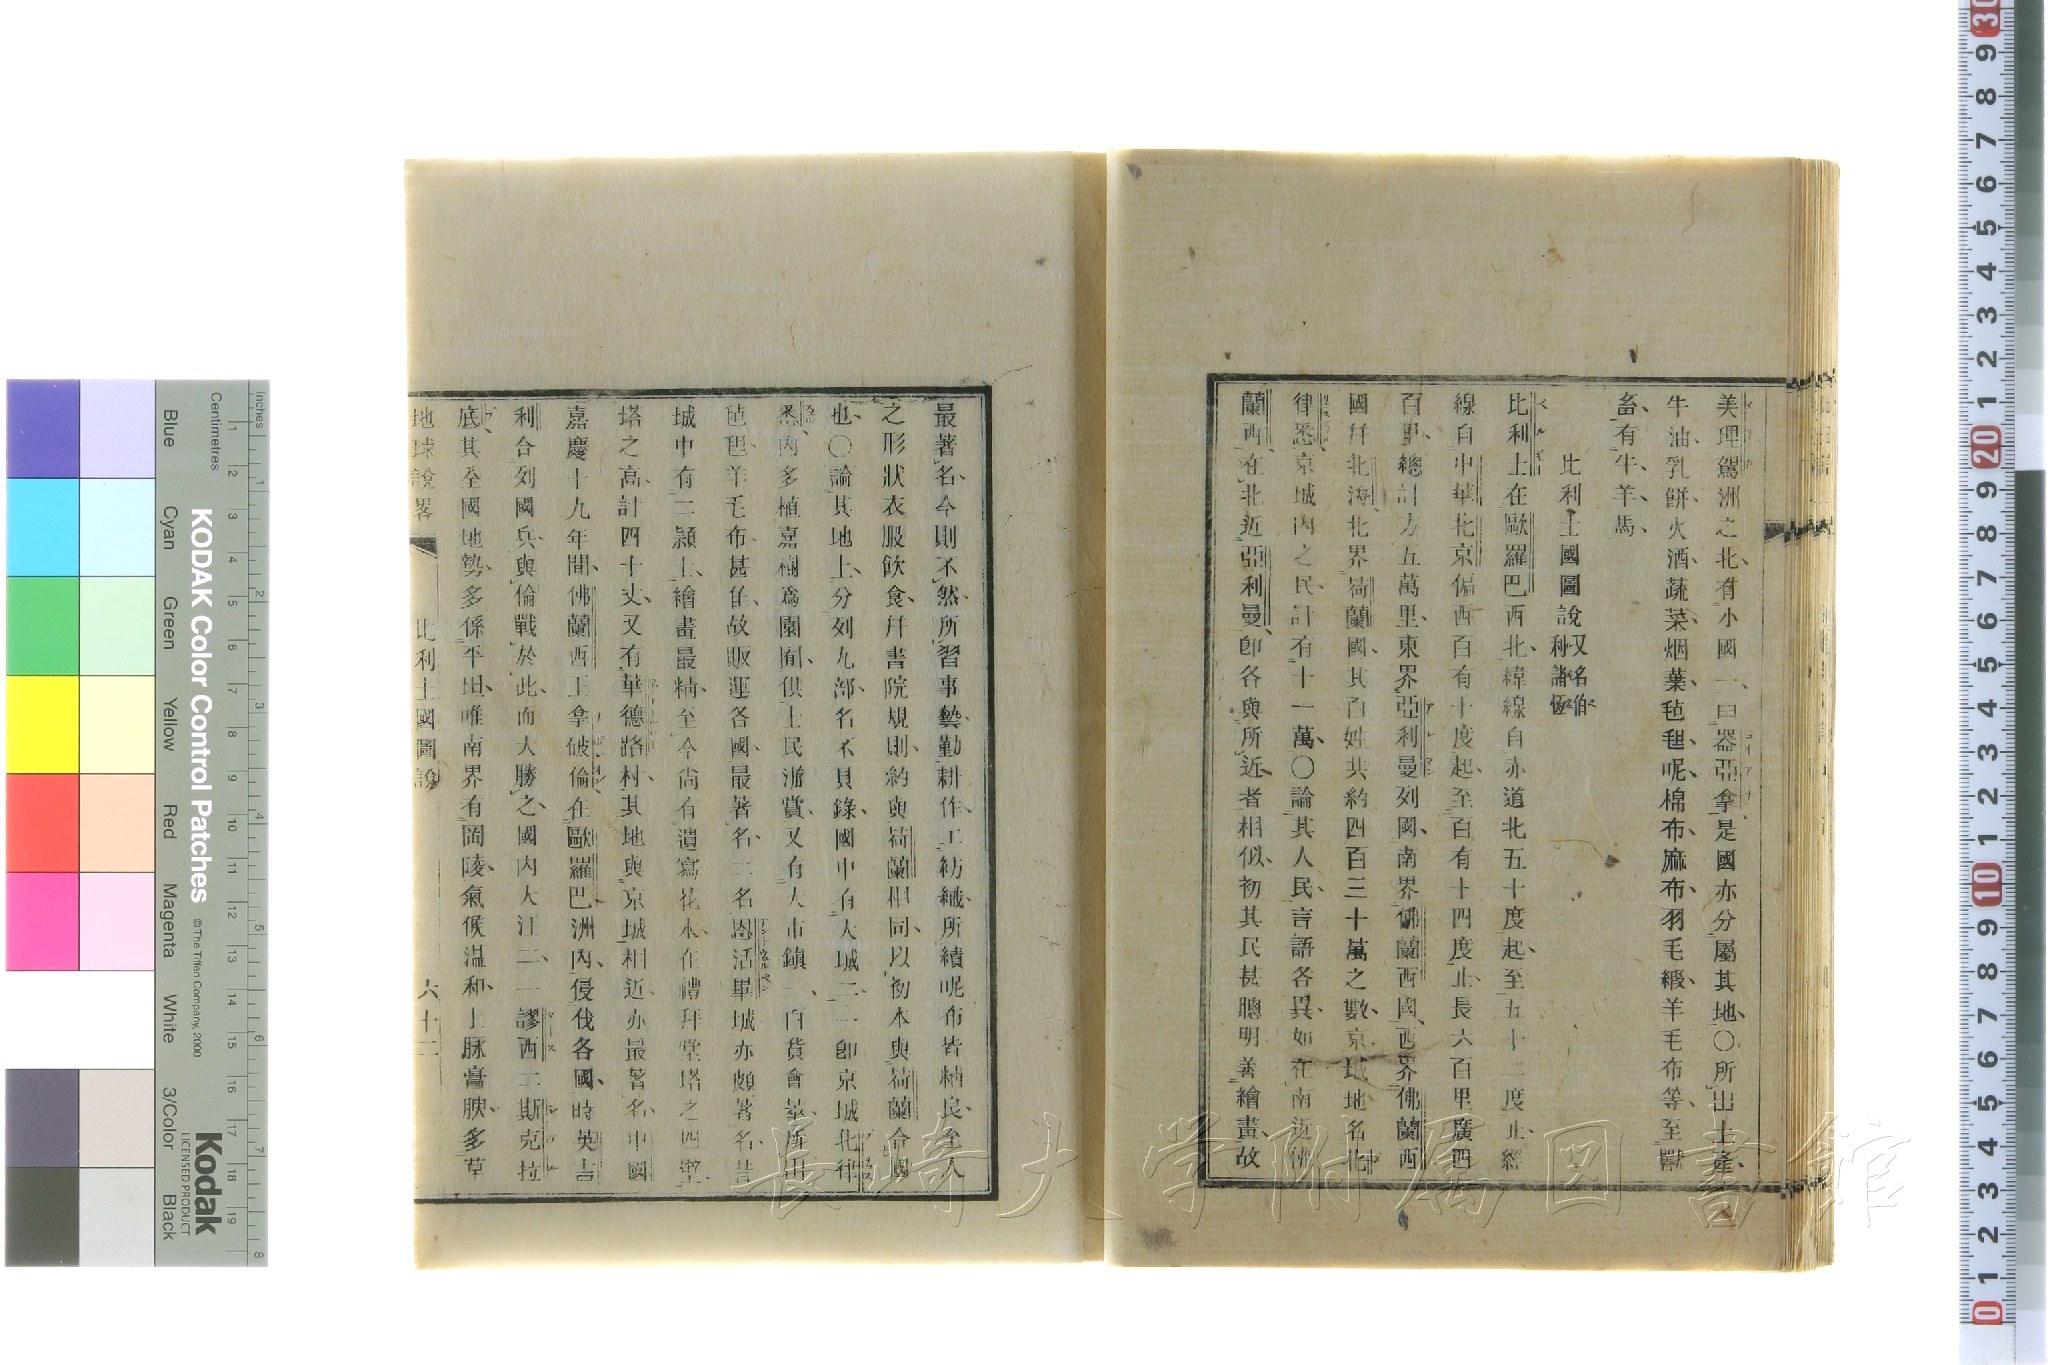 美理駕洲之北、有小國一、曰器亞拿、是國亦分屬其地、〇所出土產、
牛油、乳餅、火酒、蔬菜、烟葉、毡毯、呢、棉布、麻布、羽毛緞、羊毛布等、至獸
畜、有牛、羊、馬、
比利士國圖說又名伯利諸恆
比利士在歐羅巴西北、緯線自赤道北五十度起、至五十二度止、經
線自中華北京偏西百有十度起、至百有十四度止、長六百里、廣四
百里、總計方五萬里、東界亞利曼列國、南界佛蘭西國、西界佛蘭西
國幷北海、北界荷蘭國、其百姓共約四百三十萬之數、京城地名北
律悉、京城內之民、計有十一萬、〇論其人民、言語各異、如在南近佛
蘭西、在北近亞利曼、卽各與所近者相似、初其民甚聰明、善繪畫、故
最著名、今則不然、所習事藝、勤耕作、工紡織、所績呢布皆精良、至人
之形狀衣服飲食、幷書院規則、約與荷蘭相同、以初本與荷蘭合國
也、〇論其地土、分列九部、名不具錄、國中有大城二、一卽京城北律
悉、內多植嘉樹爲園囿、供士民游賞、又有大市鎮一、百貨會萃、所出
毡毯羊毛布、甚佳、故販運各國、最著名、一名恩活畢城、亦頗著名、昔
城中有二穎士、繪畫最精、至今尚有遺寫花木、在禮拜堂塔之四壁、
塔之高、計四十丈、又有華德路村、其地與京城相近、亦最著名、中國
嘉慶十九年間、佛蘭西王拿破倫、在歐羅巴洲內、侵伐各國、時英吉
利合列國兵、與倫戰於此、而大勝之、國內大江二、一謬西、二斯克拉
底、其全國地勢、多係平坦、唯南界有岡陵、氣候溫和、土脉膏腴、多草
地球說畧 比利士國圖說 六十二
KODAK Color Control Patches
© The Tiffen Company, 2000
Kodak
LICENSED PRODUCT
Blue Cyan Green Yellow Red Magenta White 3/Color Black
Inches
Centimetres
長崎大学附属図書館